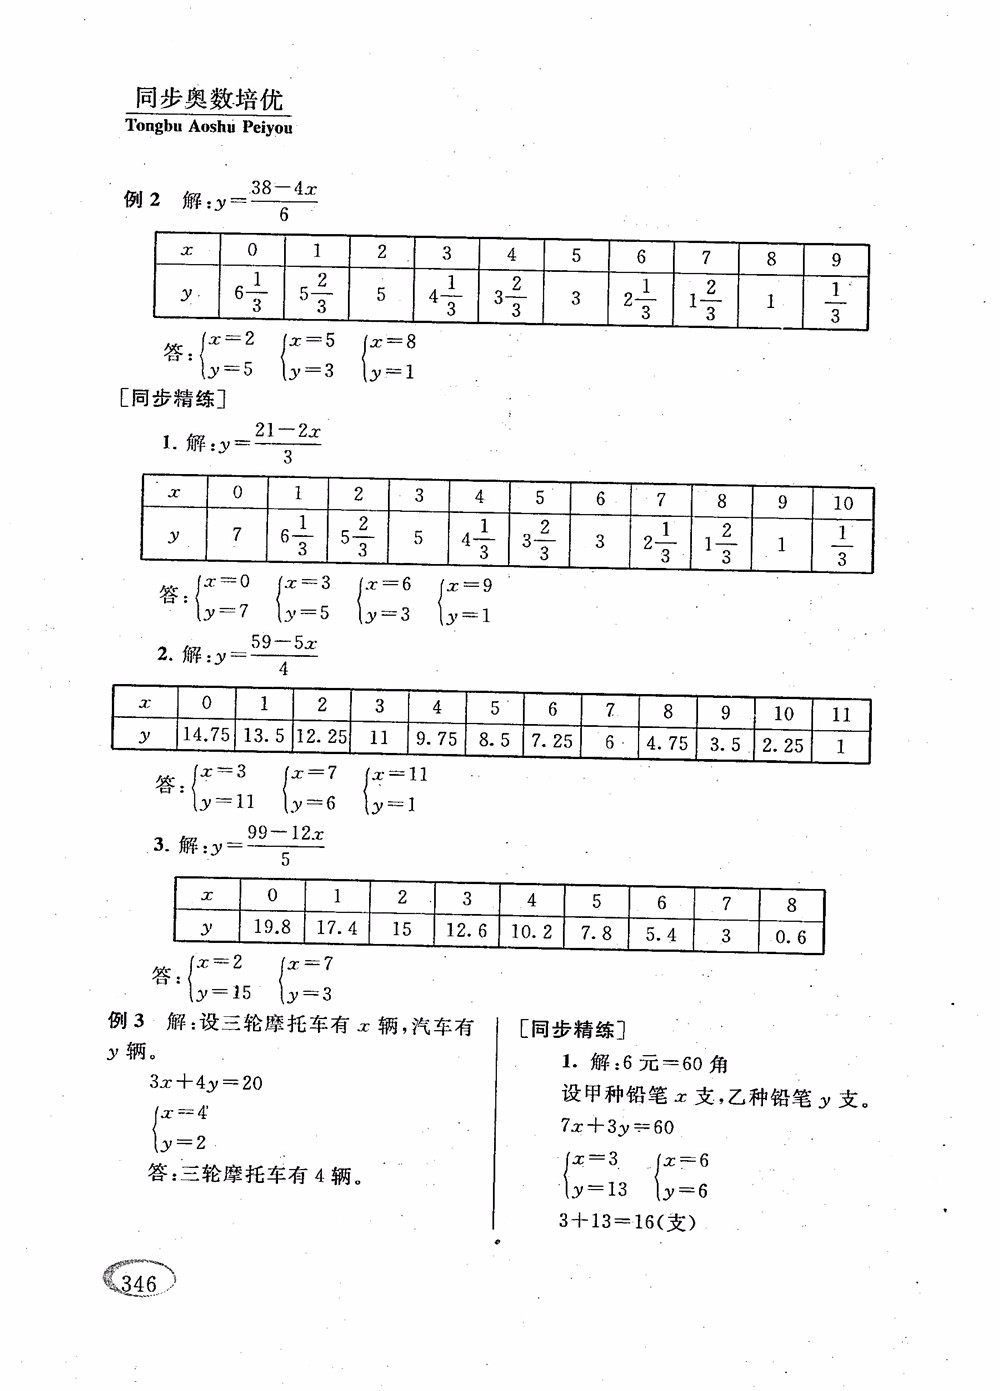 同步奥数培优
Tongbu Aoshu Peiyou
例2 解:y=(38-4x)/6
x 0 1 2 3 4 5 6 7 8 9
y 6 1/3 5 2/3 5 4 1/3 3 2/3 3 2 1/3 1 2/3 1 1/3
答:{x=2 {x=5 {x=8
y=5 y=3 y=1
[同步精练]
1. 解:y=(21-2x)/3
x 0 1 2 3 4 5 6 7 8 9 10
y 7 6 1/3 5 2/3 5 4 1/3 3 2/3 3 2 1/3 1 2/3 1 1/3
答:{x=0 {x=3 {x=6 {x=9
y=7 y=5 y=3 y=1
2. 解:y=(59-5x)/4
x 0 1 2 3 4 5 6 7 8 9 10 11
y 14.75 13.5 12.25 11 9.75 8.5 7.25 6 4.75 3.5 2.25 1
答:{x=3 {x=7 {x=11
y=11 y=6 y=1
3. 解:y=(99-12x)/5
x 0 1 2 3 4 5 6 7 8
y 19.8 17.4 15 12.6 10.2 7.8 5.4 3 0.6
答:{x=2 {x=7
y=15 y=3
例3 解:设三轮摩托车有 x 辆,汽车有
y 辆。
3x+4y=20
{x=4
y=2
答:三轮摩托车有 4 辆。
[同步精练]
1. 解:6 元=60 角
设甲种铅笔 x 支,乙种铅笔 y 支。
7x+3y=60
{x=3 {x=6
y=13 y=6
3+13=16(支)
346